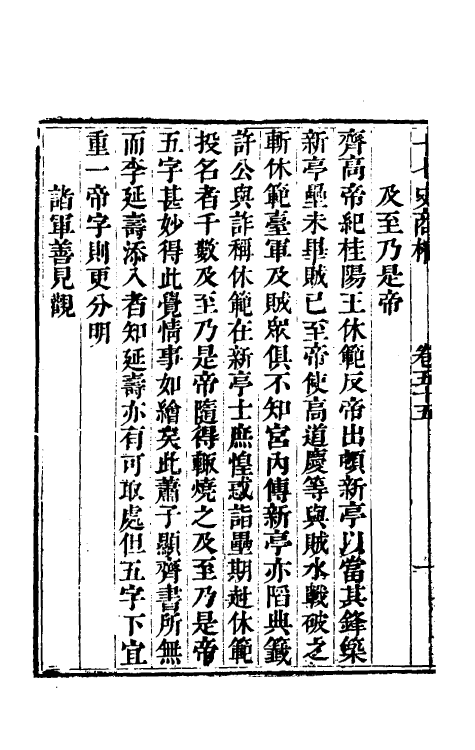 十七史商榷 卷五十五 一
及至乃是帝
齊高帝紀桂陽王休範反帝出頓新亭以當其鋒築
新亭壘未畢賊已至帝使高道慶等與賊水戰破之
斬休範臺軍及賊衆俱不知宮內傳新亭亦陷典籤
許公與詐稱休範在新亭士庶惶惑詣壘期赴休範
投名者千數及至乃是帝隨得輙燒之及至乃是帝
五字甚妙得此覺情事如繪矣此蕭子顯齊書所無
而李延壽添入者知延壽亦有可取處但五字下宜
重一帝字則更分明
諸軍善見觀